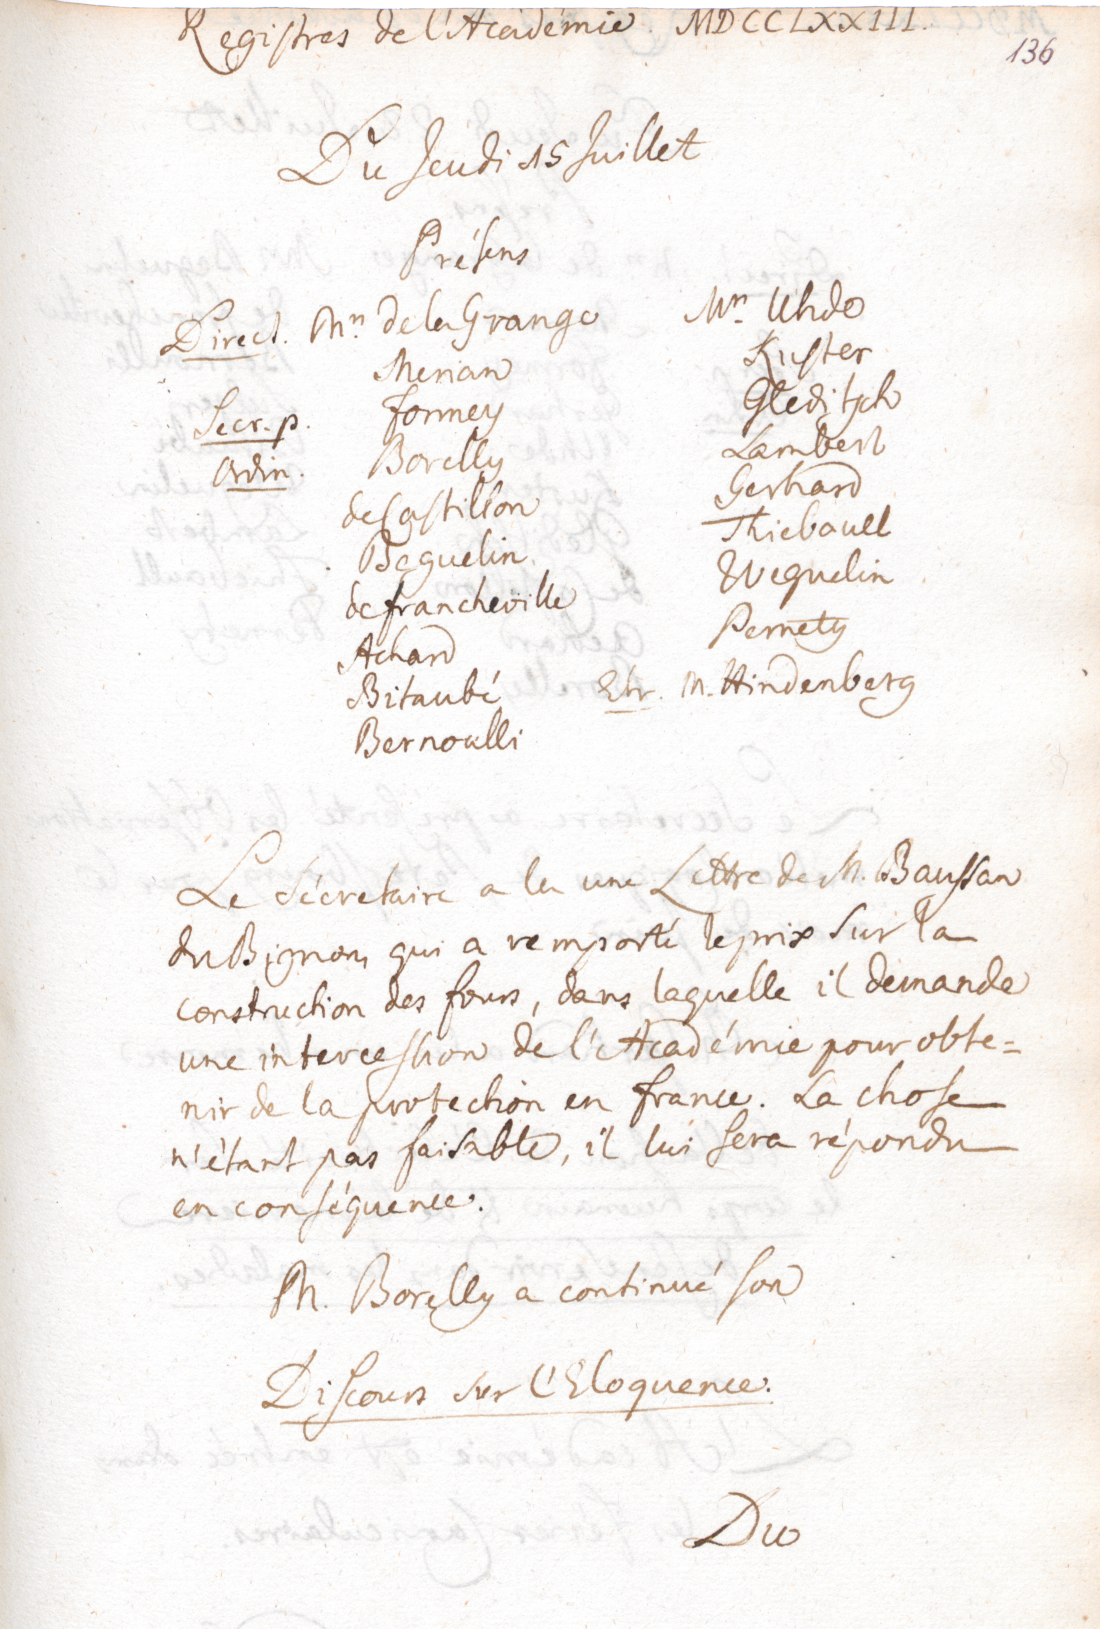 Registres de l'Académie. MDCCLXXIII.
136
Du Jeudi 15 Juillet
Présens
Direct. Mrs. de la Grange
Merian
Secr. p. Formey
Ordin. Borelly
de Castillon
Beguelin
de Francheville
Achard
Bitaubé
Bernoulli
Mrs. Uhde
Kuster
Gleditsch
Lambert
Gerhard
Thiebault
Weguelin
Pernety
Etr. M. Hindenberg
Le Sécretaire a lu une Lettre de M. Baussan
du Bignon, qui a remporté le prix sur la
construction des fours, dans laquelle il demande
une intercession de l'Académie pour obte=
nir de la protection en France. La chose
n'étant pas faisable, il lui sera répondu
en conséquence.
M. Borelly a continué son
Discours sur l'Eloquence.
Du